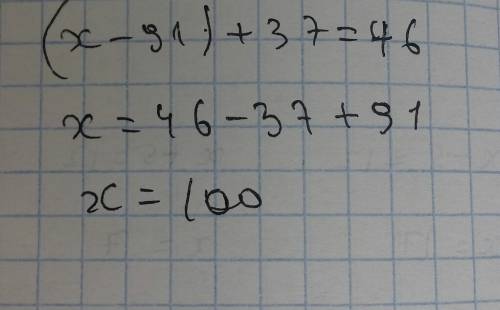 (x - 91) + 37 = 46
x = 46 - 37 + 91
x = 100